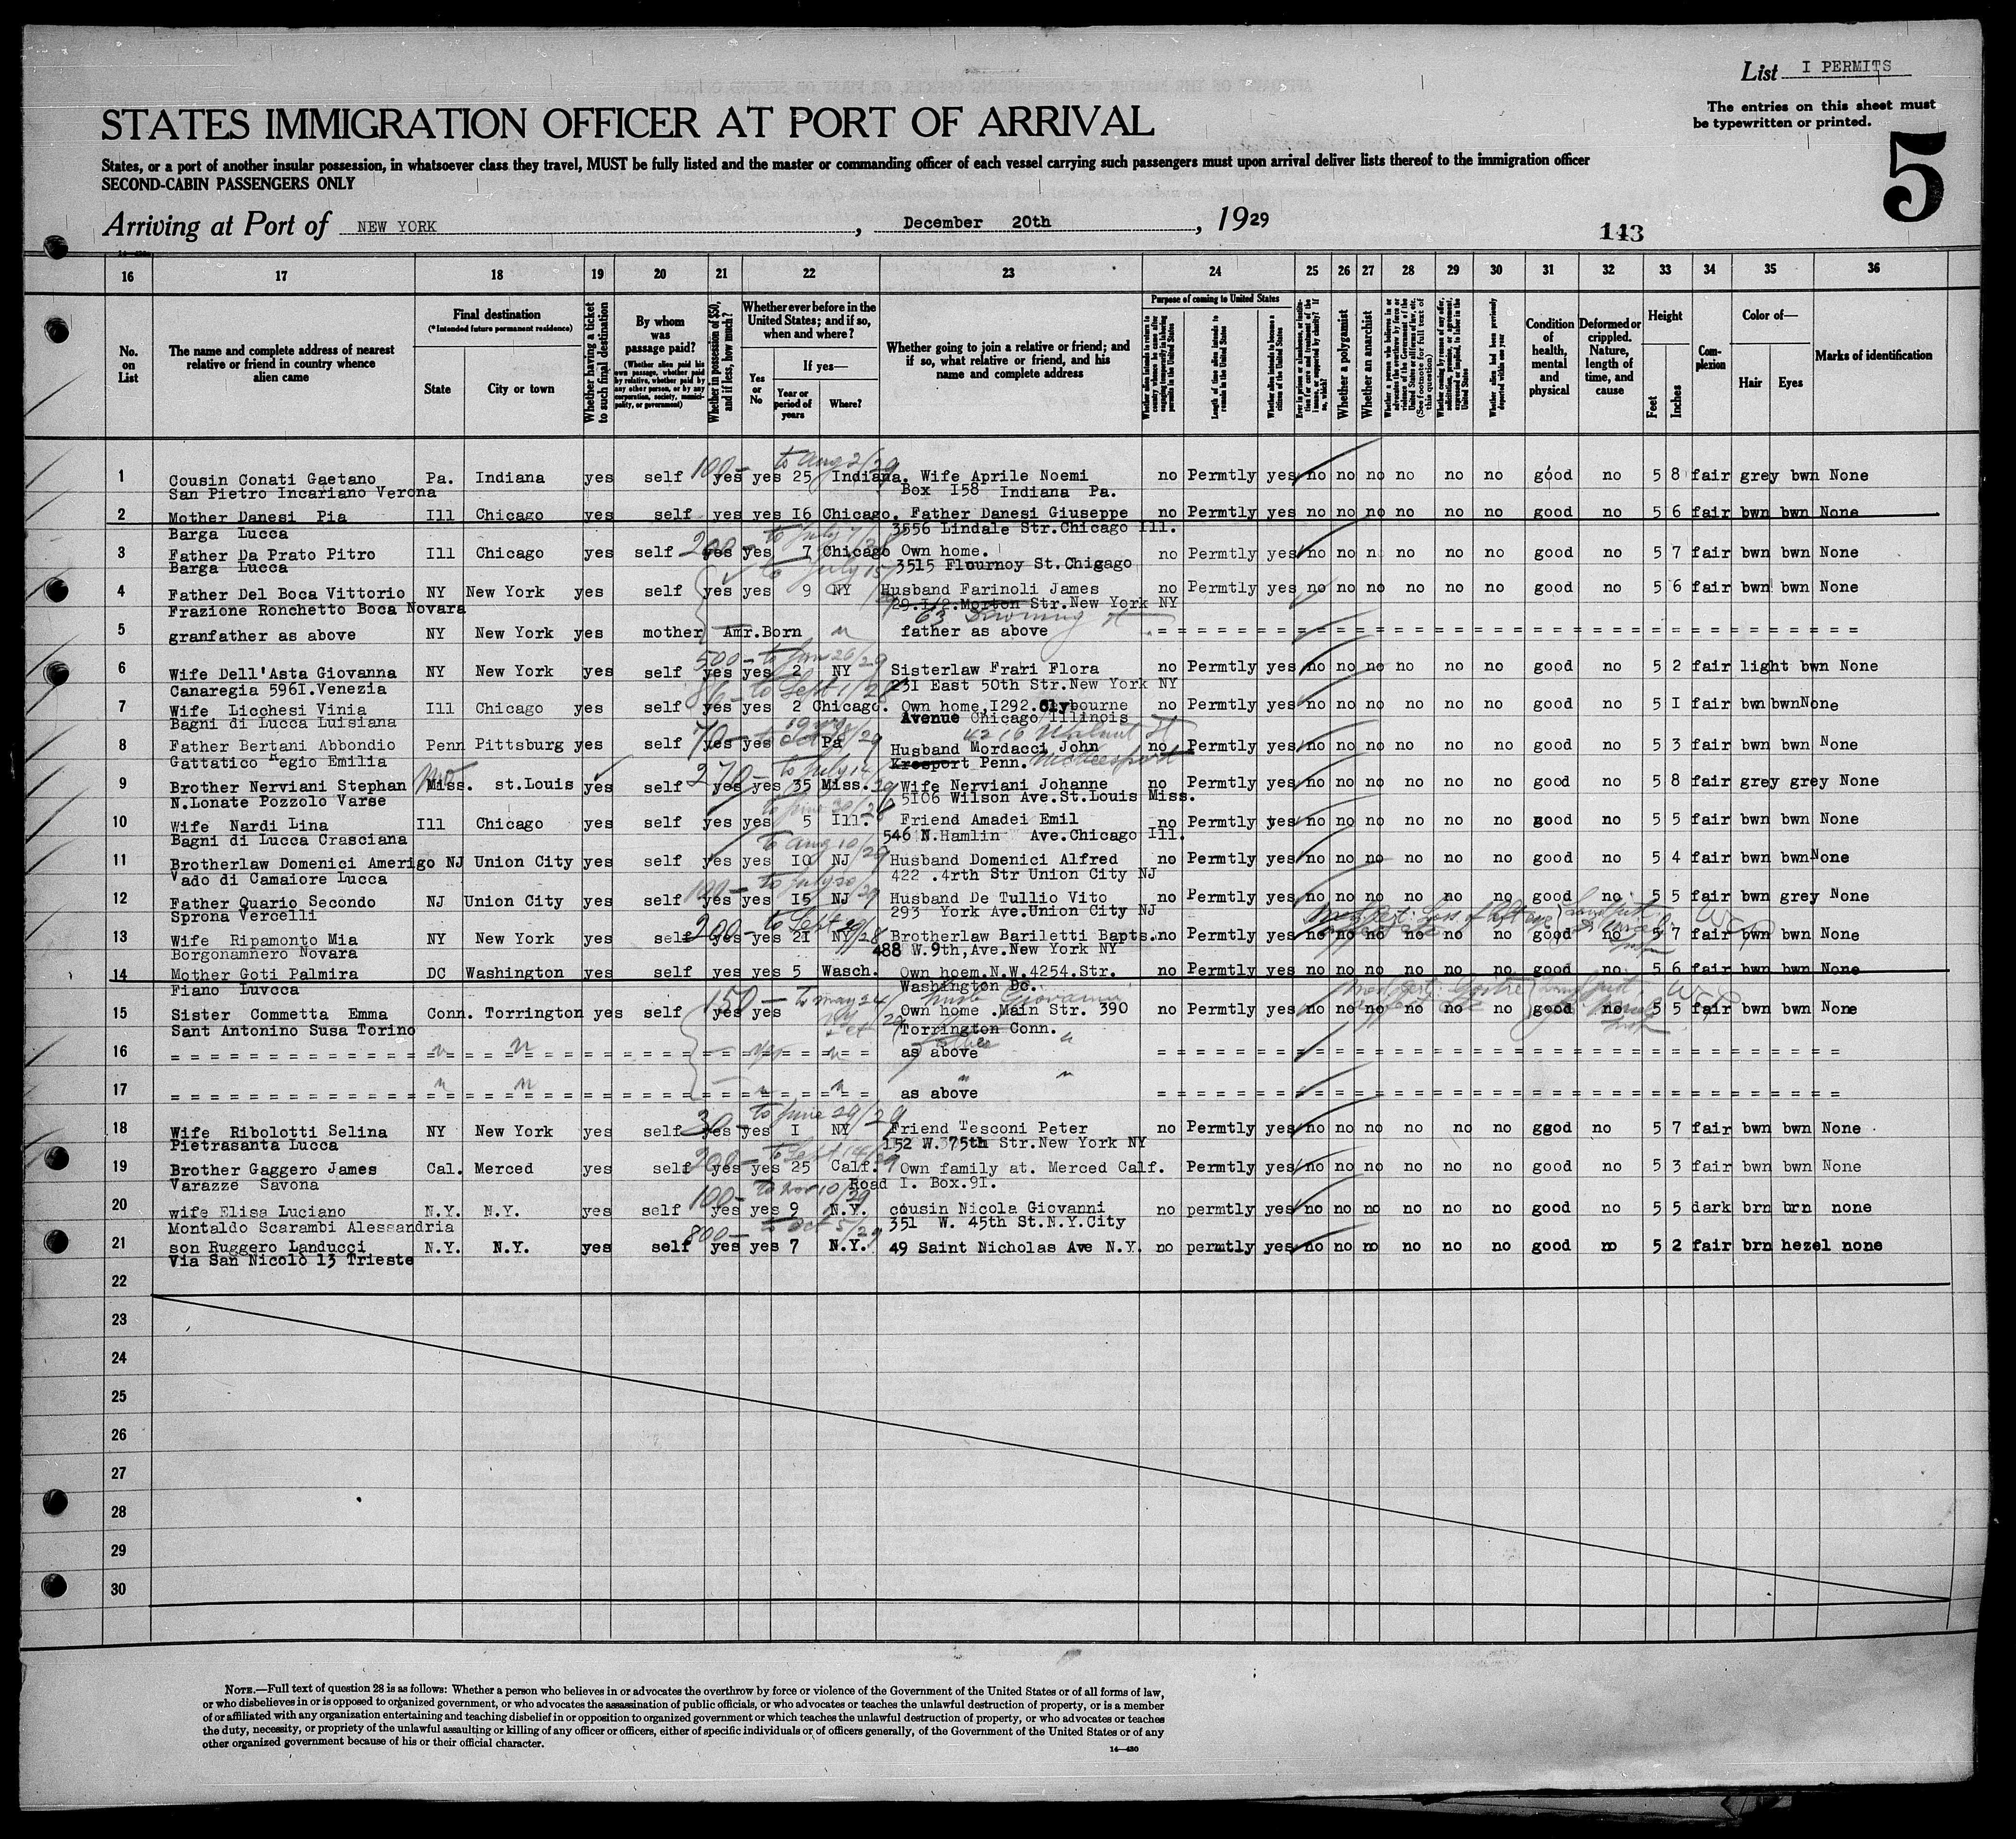 List I PERMITS
The entries on this sheet must
be typewritten or printed.
STATES IMMIGRATION OFFICER AT PORT OF ARRIVAL
5
States, or a port of another insular possession, in whatsoever class they travel, MUST be fully listed and the master or commanding officer of each vessel carrying such passengers must upon arrival deliver lists thereof to the immigration officer
SECOND-CABIN PASSENGERS ONLY
Arriving at Port of NEW YORK, December 20th, 1929
143
16 17 18 19 20 21 22 23 24 25 26 27 28 29 30 31 32 33 34 35 36
No. on List
The name and complete address of nearest relative or friend in country whence alien came
Final destination
(*Intended future permanent residence)
State
City or town
Whether having a ticket to such final destination
By whom was passage paid?
(Whether alien paid his own passage, whether paid by relative, whether paid by any other person, or by any corporation, society, municipality, or government)
Whether in possession of $50, and if less, how much?
Whether ever before in the United States; and if so, when and where?
Yes or No
If yes—
Year or period of years
Where?
Whether going to join a relative or friend; and if so, what relative or friend, and his name and complete address
Purpose of coming to United States
Length of time alien intends to remain in the United States
Whether alien intends to become a citizen of the United States
Whether a polygamist
Whether an anarchist
(See footnote for full text of this question)
Whether alien had been previously deported within one year
Condition of health, mental and physical
Deformed or crippled. Nature, length of time, and cause
Height
Feet
Inches
Complexion
Color of—
Hair
Eyes
Marks of identification
100- to Aug 2/29
1 Cousin Conati Gaetano Pa. Indiana yes self yes yes 25 Indiana. Wife Aprile Noemi no Permtly yes no no no no no no good no 5 8 fair grey bwn None
San Pietro Incariano Verona Box I58 Indiana Pa.
2 Mother Danesi Pia Ill Chicago yes self yes yes I6 Chicago. Father Danesi Giuseppe no Permtly yes no no no no no no good no 5 6 fair bwn bwn None
Barga Lucca 3556 Lindale Str.Chicago Ill.
200- to July 7/28
3 Father Da Prato Pitro Ill Chicago yes self yes yes 7 Chicago Own home. no Permtly yes no no n no no no good no 5 7 fair bwn bwn None
Barga Lucca 3515 Flournoy St.Chicago
to July 15/29
4 Father Del Boca Vittorio NY New York yes self yes yes 9 NY Husband Farinoli James no Permtly yes no no no no no no good no 5 6 fair bwn bwn None
Frazione Ronchetto Boca Novara 29.I/2.Morton Str.New York NY
63 Downing St
5 granfather as above NY New York yes mother Amr.Born " father as above = = = = = = = = = = = = = = = = = = = = = = = = = = = = = = = = =
500- to Jan 26/29
6 Wife Dell'Asta Giovanna NY New York yes self yes yes 2 NY Sisterlaw Frari Flora no Permtly yes no no no no no no good no 5 2 fair light bwn None
Canaregia 596I.Venezia 23I East 50th Str.New York NY
86- to Sept 1/28
7 Wife Licchesi Vinia Ill Chicago yes self yes yes 2 Chicago. Own home,I292.Clybourne no Permtly yes no no no no no no good no 5 I fair bwn bwn None
Bagni di Lucca Luisiana Avenue Chicago Illinois
70- to Oct 8/29 4216 Walnut St
8 Father Bertani Abbondio Penn Pittsburg yes self yes yes Pa Husband Mordacci John no Permtly yes no no no no no no good no 5 3 fair bwn bwn None
Gattatico Regio Emilia Kresport Penn. McKeesport
Mo 270- to July 14/29
9 Brother Nerviani Stephan Miss. st.Louis yes self yes yes 35 Miss. Wife Nerviani Johanne no Permtly yes no no no no no no good no 5 8 fair grey grey None
N.Lonate Pozzolo Varse 5I06 Wilson Ave.St.Louis Miss.
to June 30/28
10 Wife Nardi Lina Ill Chicago yes self yes yes 5 Ill. Friend Amadei Emil no Permtly yes no no no no no no good no 5 5 fair bwn bwn None
Bagni di Lucca Crasciana 546 N.Hamlin Ave.Chicago Ill.
to Aug 10/29
11 Brotherlaw Domenici Amerigo NJ Union City yes self yes yes I0 NJ Husband Domenici Alfred no Permtly yes no no no no no no good no 5 4 fair bwn bwn None
Vado di Camaiore Lucca 422 .4rth Str Union City NJ
100- to July 20/29
12 Father Quario Secondo NJ Union City yes self yes yes I5 NJ Husband De Tullio Vito no Permtly yes no no no no no no good no 5 5 fair bwn grey None
Sprona Vercelli 293 York Ave.Union City NJ
200- to Sept 29/28 Med Cert: Loss of left eye
13 Wife Ripamonto Mia NY New York yes self yes yes 2I NY Brotherlaw Bariletti Bapts. no Permtly yes no no no no no no good no 5 7 fair bwn bwn None
Borgonamhero Novara 488 W.9th,Ave.New York NY
14 Mother Goti Palmira DC Washington yes self yes yes 5 Wasch. Own hoem.N.W.4254.Str. no Permtly yes no no no no no no good no 5 6 fair bwn bwn None
Fiano Luvcca Washington Dc.
150- to May 24/29 Giovanni Med Cert: Goitre
15 Sister Commetta Emma Conn. Torrington yes self yes yes Own home .Main Str. 390 no Permtly yes no no no no no no good no 5 5 fair bwn bwn None
Sant Antonino Susa Torino Torrington Conn.
16 = = = = = = = = = = " " = = = = = " as above " = = = = = = = = = = = = = = = = = = = = = = = = = = = = = = = = =
17 = = = = = = = = = = " " = = = = = " as above = = = = = = = = = = = = = = = = = = = = = = = = = = = = = = = = =
30- to June 29/29
18 Wife Ribolotti Selina NY New York yes self yes yes I NY Friend Tesconi Peter no Permtly yes no no no no no no good no 5 7 fair bwn bwn None
Pietrasanta Lucca I52 W.375th Str.New York NY
200- to Sept 14/29
19 Brother Gaggero James Cal. Merced yes self yes yes 25 Calf. Own family at. Merced Calf. Permtly yes no no no no no no good no 5 3 fair bwn bwn None
Varazze Savona Road I. Box.9I.
100- to Nov 10/29
20 wife Elisa Luciano N.Y. N.Y. yes self yes yes 9 N.Y. cousin Nicola Giovanni no permtly yes no no no no no no good no 5 5 dark brn brn none
Montaldo Scarambi Alessandria 351 W. 45th St.N.Y.City
800- to Oct 5/29
21 son Ruggero Landucci N.Y. N.Y. yes self yes yes 7 N.Y. 49 Saint Nicholas Ave N.Y. no permtly yes no no no no no no good no 5 2 fair brn hezel none
Via San Nicolò 13 Trieste
22
23
24
25
26
27
28
29
30
NOTE.—Full text of question 28 is as follows: Whether a person who believes in or advocates the overthrow by force or violence of the Government of the United States or of all forms of law,
or who disbelieves in or is opposed to organized government, or who advocates the assassination of public officials, or who advocates or teaches the unlawful destruction of property, or is a member
of or affiliated with any organization entertaining and teaching disbelief in or opposition to organized government or which teaches the unlawful destruction of property, or who advocates or teaches
the duty, necessity, or propriety of the unlawful assaulting or killing of any officer or officers, either of specific individuals or of officers generally, of the Government of the United States or of any
other organized government because of his or their official character.
14—430